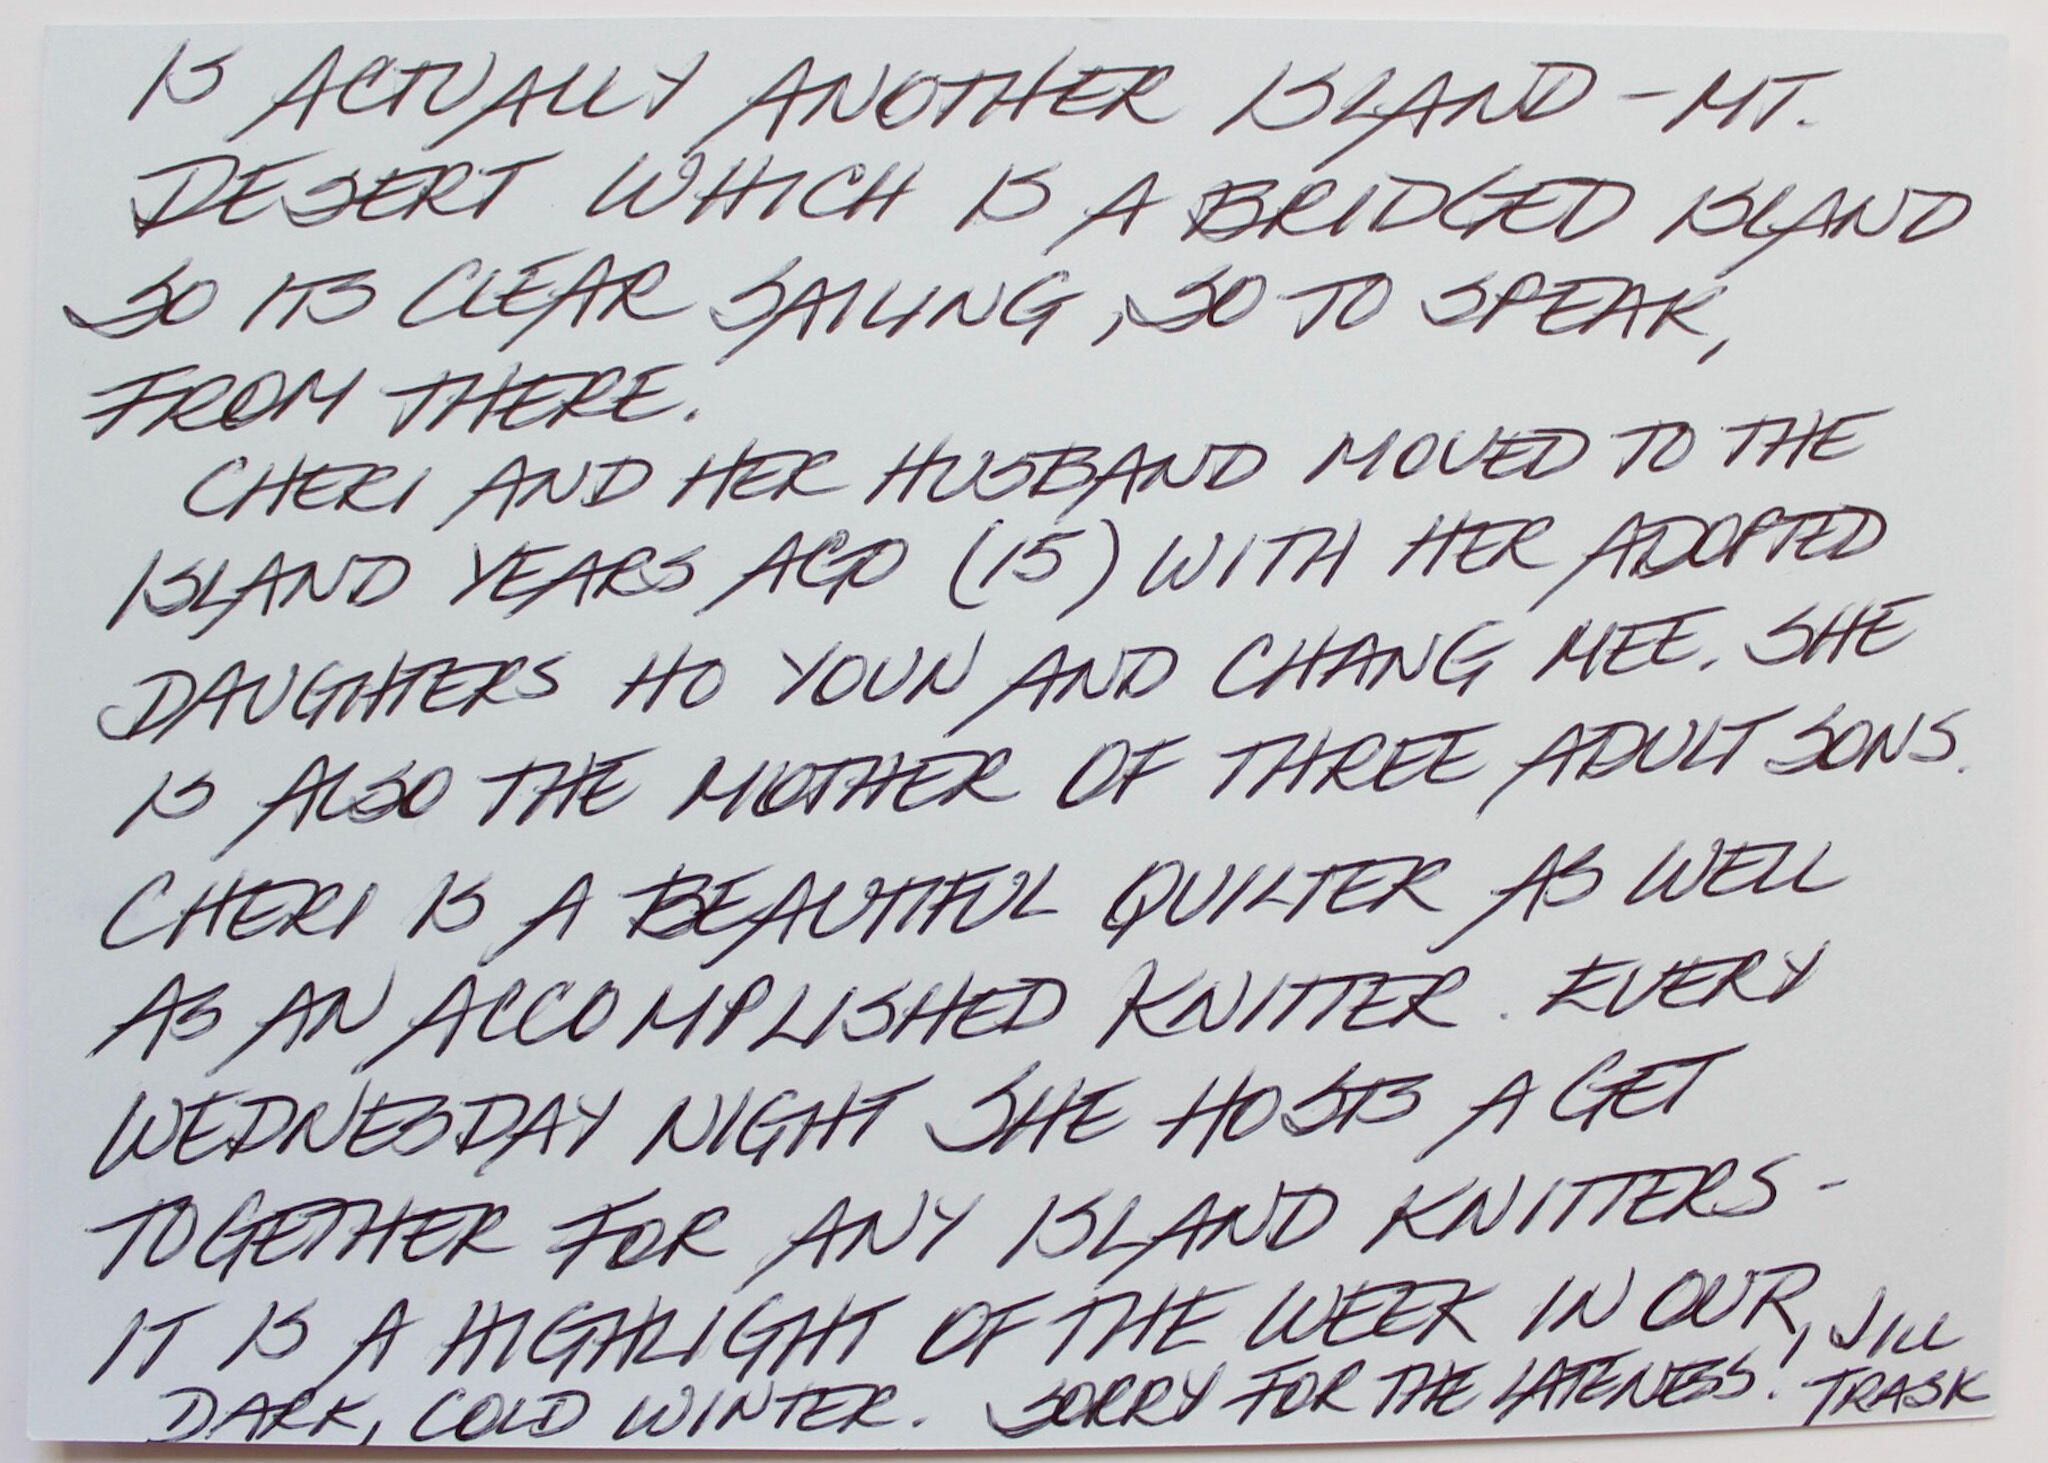 IS ACTUALLY ANOTHER ISLAND - MT.
DESERT WHICH IS A BRIDGED ISLAND
SO ITS CLEAR SAILING, SO TO SPEAK,
FROM THERE.
CHERI AND HER HUSBAND MOVED TO THE
ISLAND YEARS AGO (15) WITH HER ADOPTED
DAUGHTERS HO YOUN AND CHANG MEE. SHE
IS ALSO THE MOTHER OF THREE ADULT SONS.
CHERI IS A BEAUTIFUL QUILTER AS WELL
AS AN ACCOMPLISHED KNITTER. EVERY
WEDNESDAY NIGHT SHE HOSTS A GET
TOGETHER FOR ANY ISLAND KNITTERS -
IT IS A HIGHLIGHT OF THE WEEK IN OUR,
DARK, COLD WINTER. SORRY FOR THE LATENESS!
JILL
TRASK